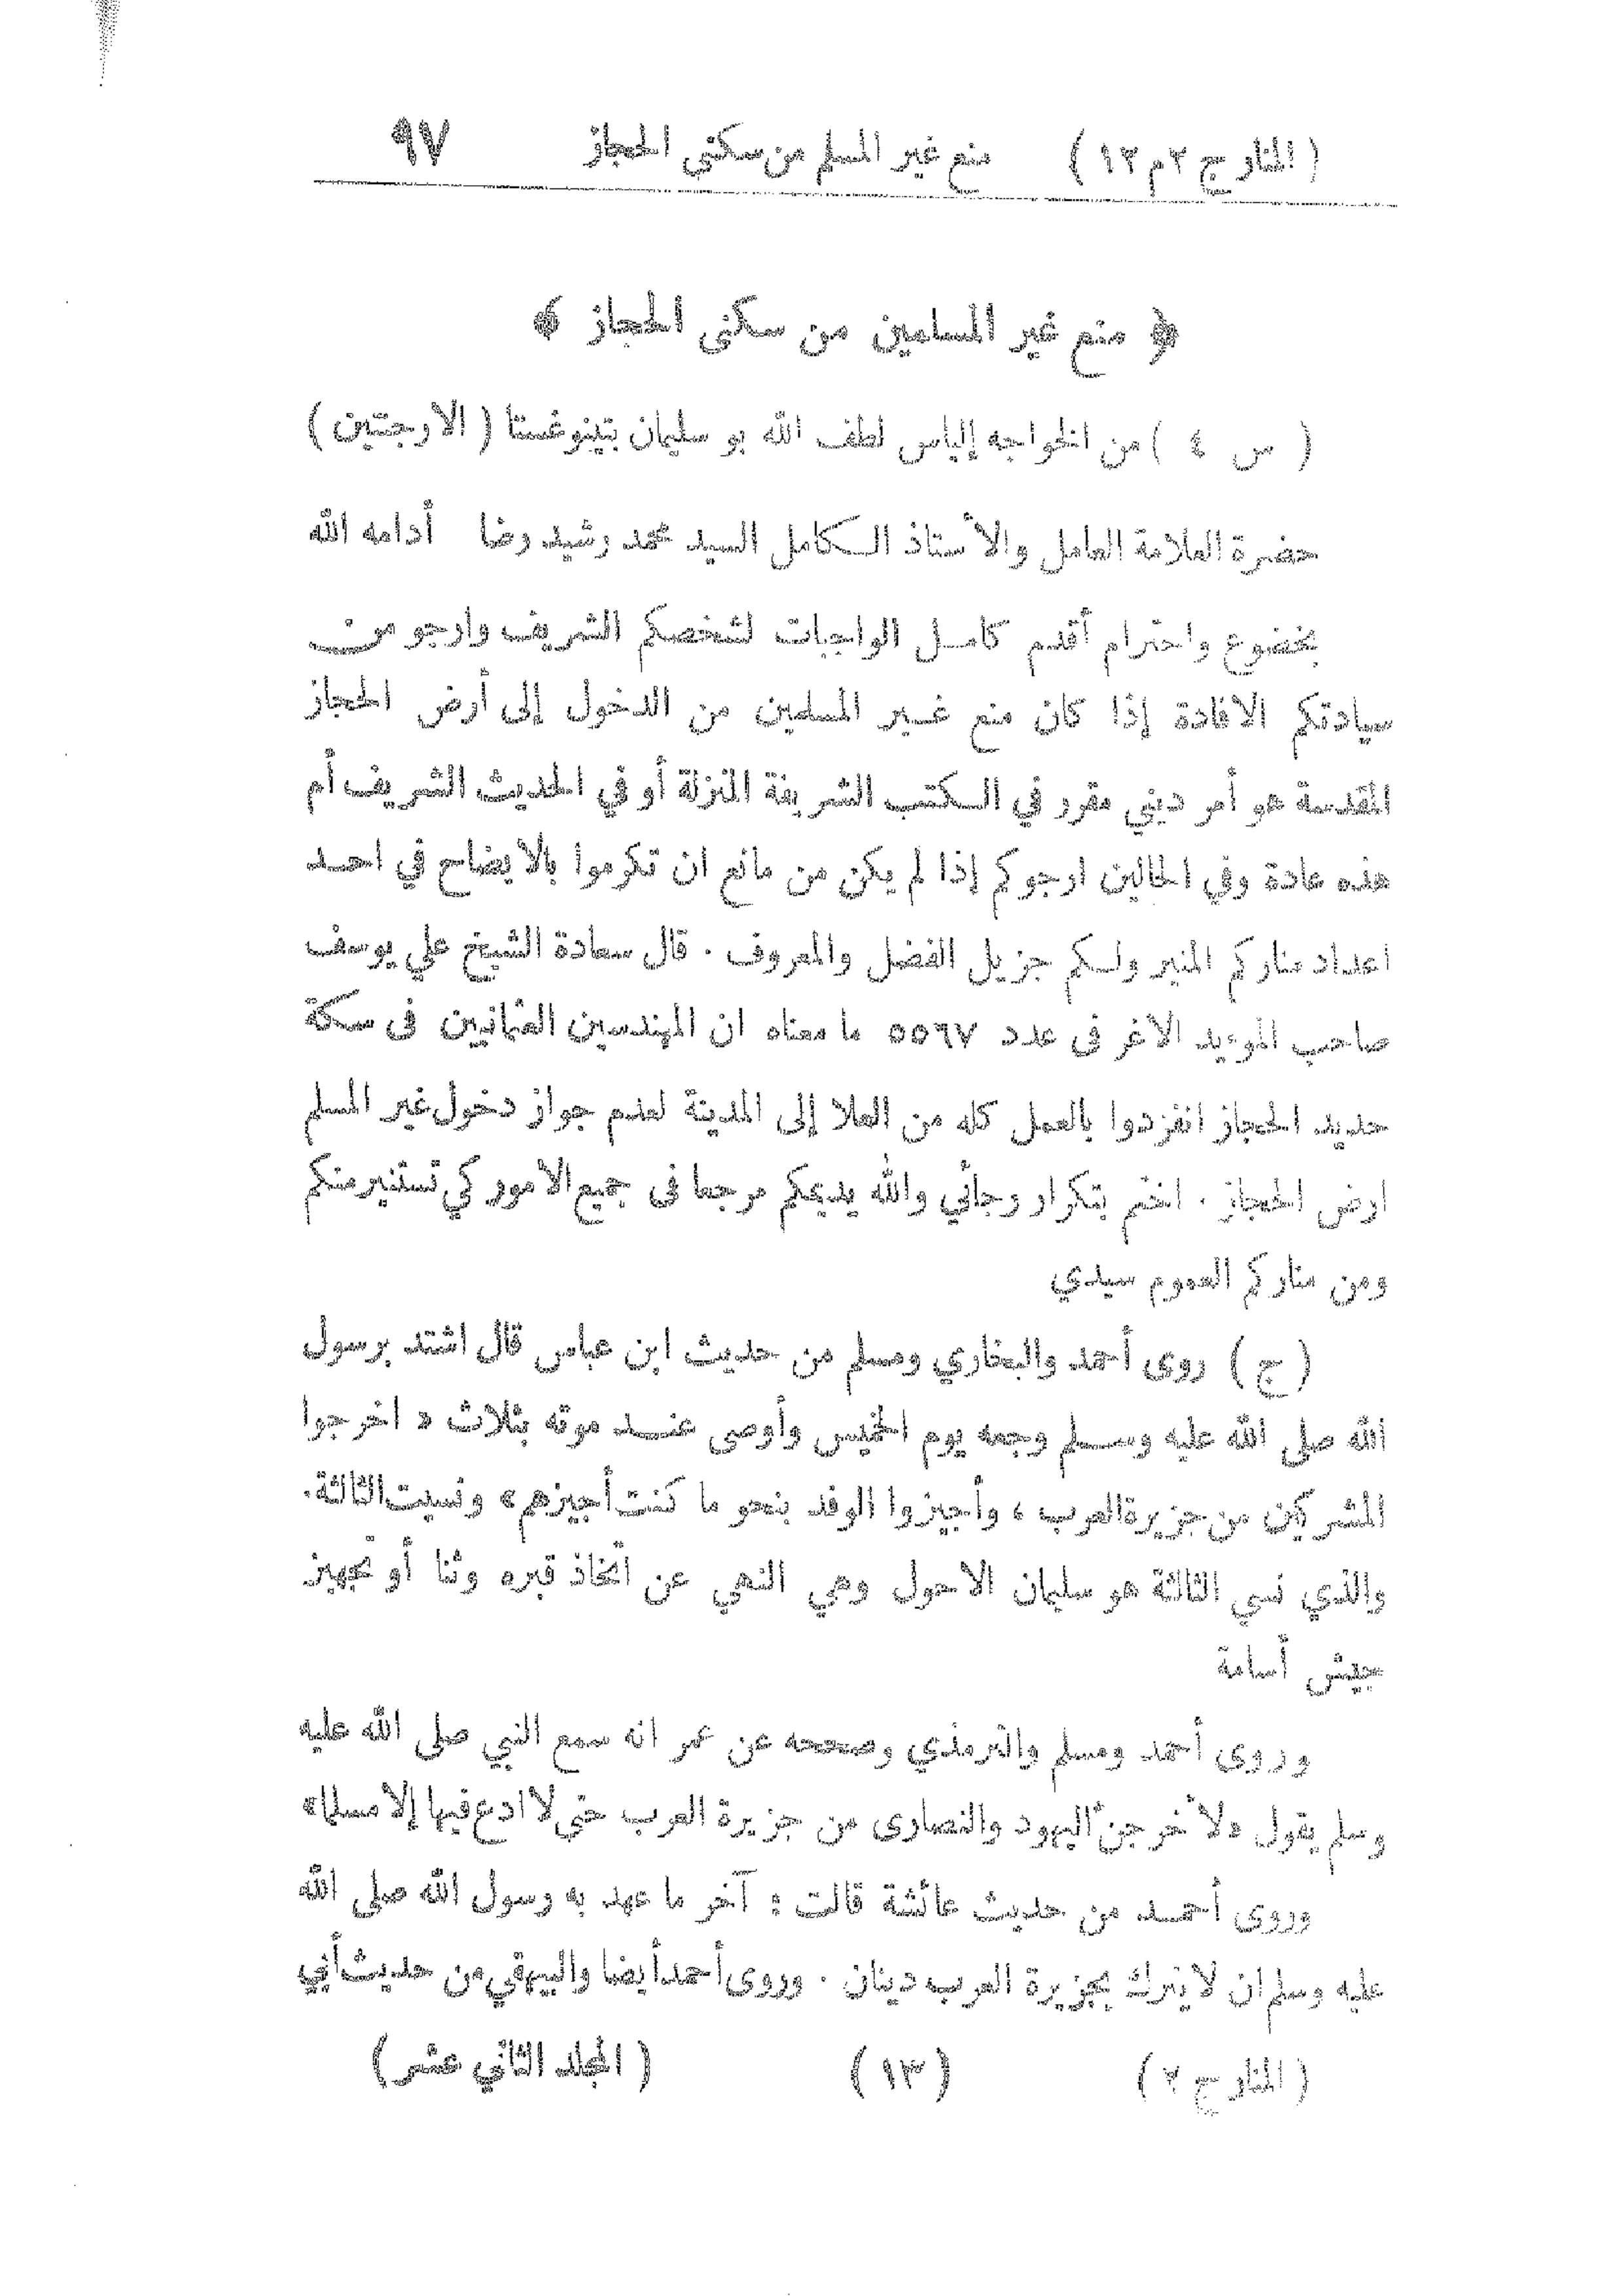 ( المنار ج ٢ م ١٢ ) منع غير المسلم من سكنى الحجاز ٩٧
﴿ منع غير المسلمين من سكنى الحجاز ﴾
( س ٤ ) من الخواجه إلياس لطف الله بو سليمان بتينوغستا ( الارجنتين )
حضرة العلامة العامل والأستاذ الكامل السيد محمد رشيد رضا أدامه الله
بخضوع واحترام أقدم كامل الواجبات لشخصكم الشريف وارجو من
سيادتكم الافادة إذا كان منع غير المسلمين من الدخول إلى أرض الحجاز
المقدسة هو أمر ديني مقرر في الكتب الشريفة المنزلة أو في الحديث الشريف أم
هذه عادة وفي الحالين ارجوكم إذا لم يكن من مانع ان تكرموا بالايضاح في احد
اعداد مناركم المنير ولكم جزيل الفضل والمعروف . قال سعادة الشيخ علي يوسف
صاحب المؤيد الاغر فى عدد ٥٥٦٧ ما معناه ان المهندسين العثمانيين فى سكة
حديد الحجاز انفردوا بالعمل كله من العلا إلى المدينة لعدم جواز دخول غير المسلم
ارض الحجاز . اختم بتكرار رجائي والله يديمكم مرجعا فى جميع الامور كي تستنير منكم
ومن مناركم العموم سيدي
( ج ) روى أحمد والبخاري ومسلم من حديث ابن عباس قال اشتد برسول
الله صلى الله عليه وسلم وجعه يوم الخميس وأوصى عند موته بثلاث « اخرجوا
المشركين من جزيرة العرب ، وأجيزوا الوفد بنحو ما كنت أجيزهم » ونسيت الثالثة .
والذي نسي الثالثة هو سليمان الاحول وهي النهي عن اتخاذ قبره وثنا أو تجهيز
جيش أسامة
وروى أحمد ومسلم والترمذي وصححه عن عمر انه سمع النبي صلى الله عليه
وسلم يقول « لأخرجنّ اليهود والنصارى من جزيرة العرب حتى لا ادع فيها إلا مسلما »
وروى أحمد من حديث عائشة قالت : آخر ما عهد به رسول الله صلى الله
عليه وسلم ان لا يترك بجزيرة العرب دينان . وروى أحمد أيضا والبيهقي من حديث أبي
( المنار ج ٢ ) ( ١٣ ) ( المجلد الثاني عشر )